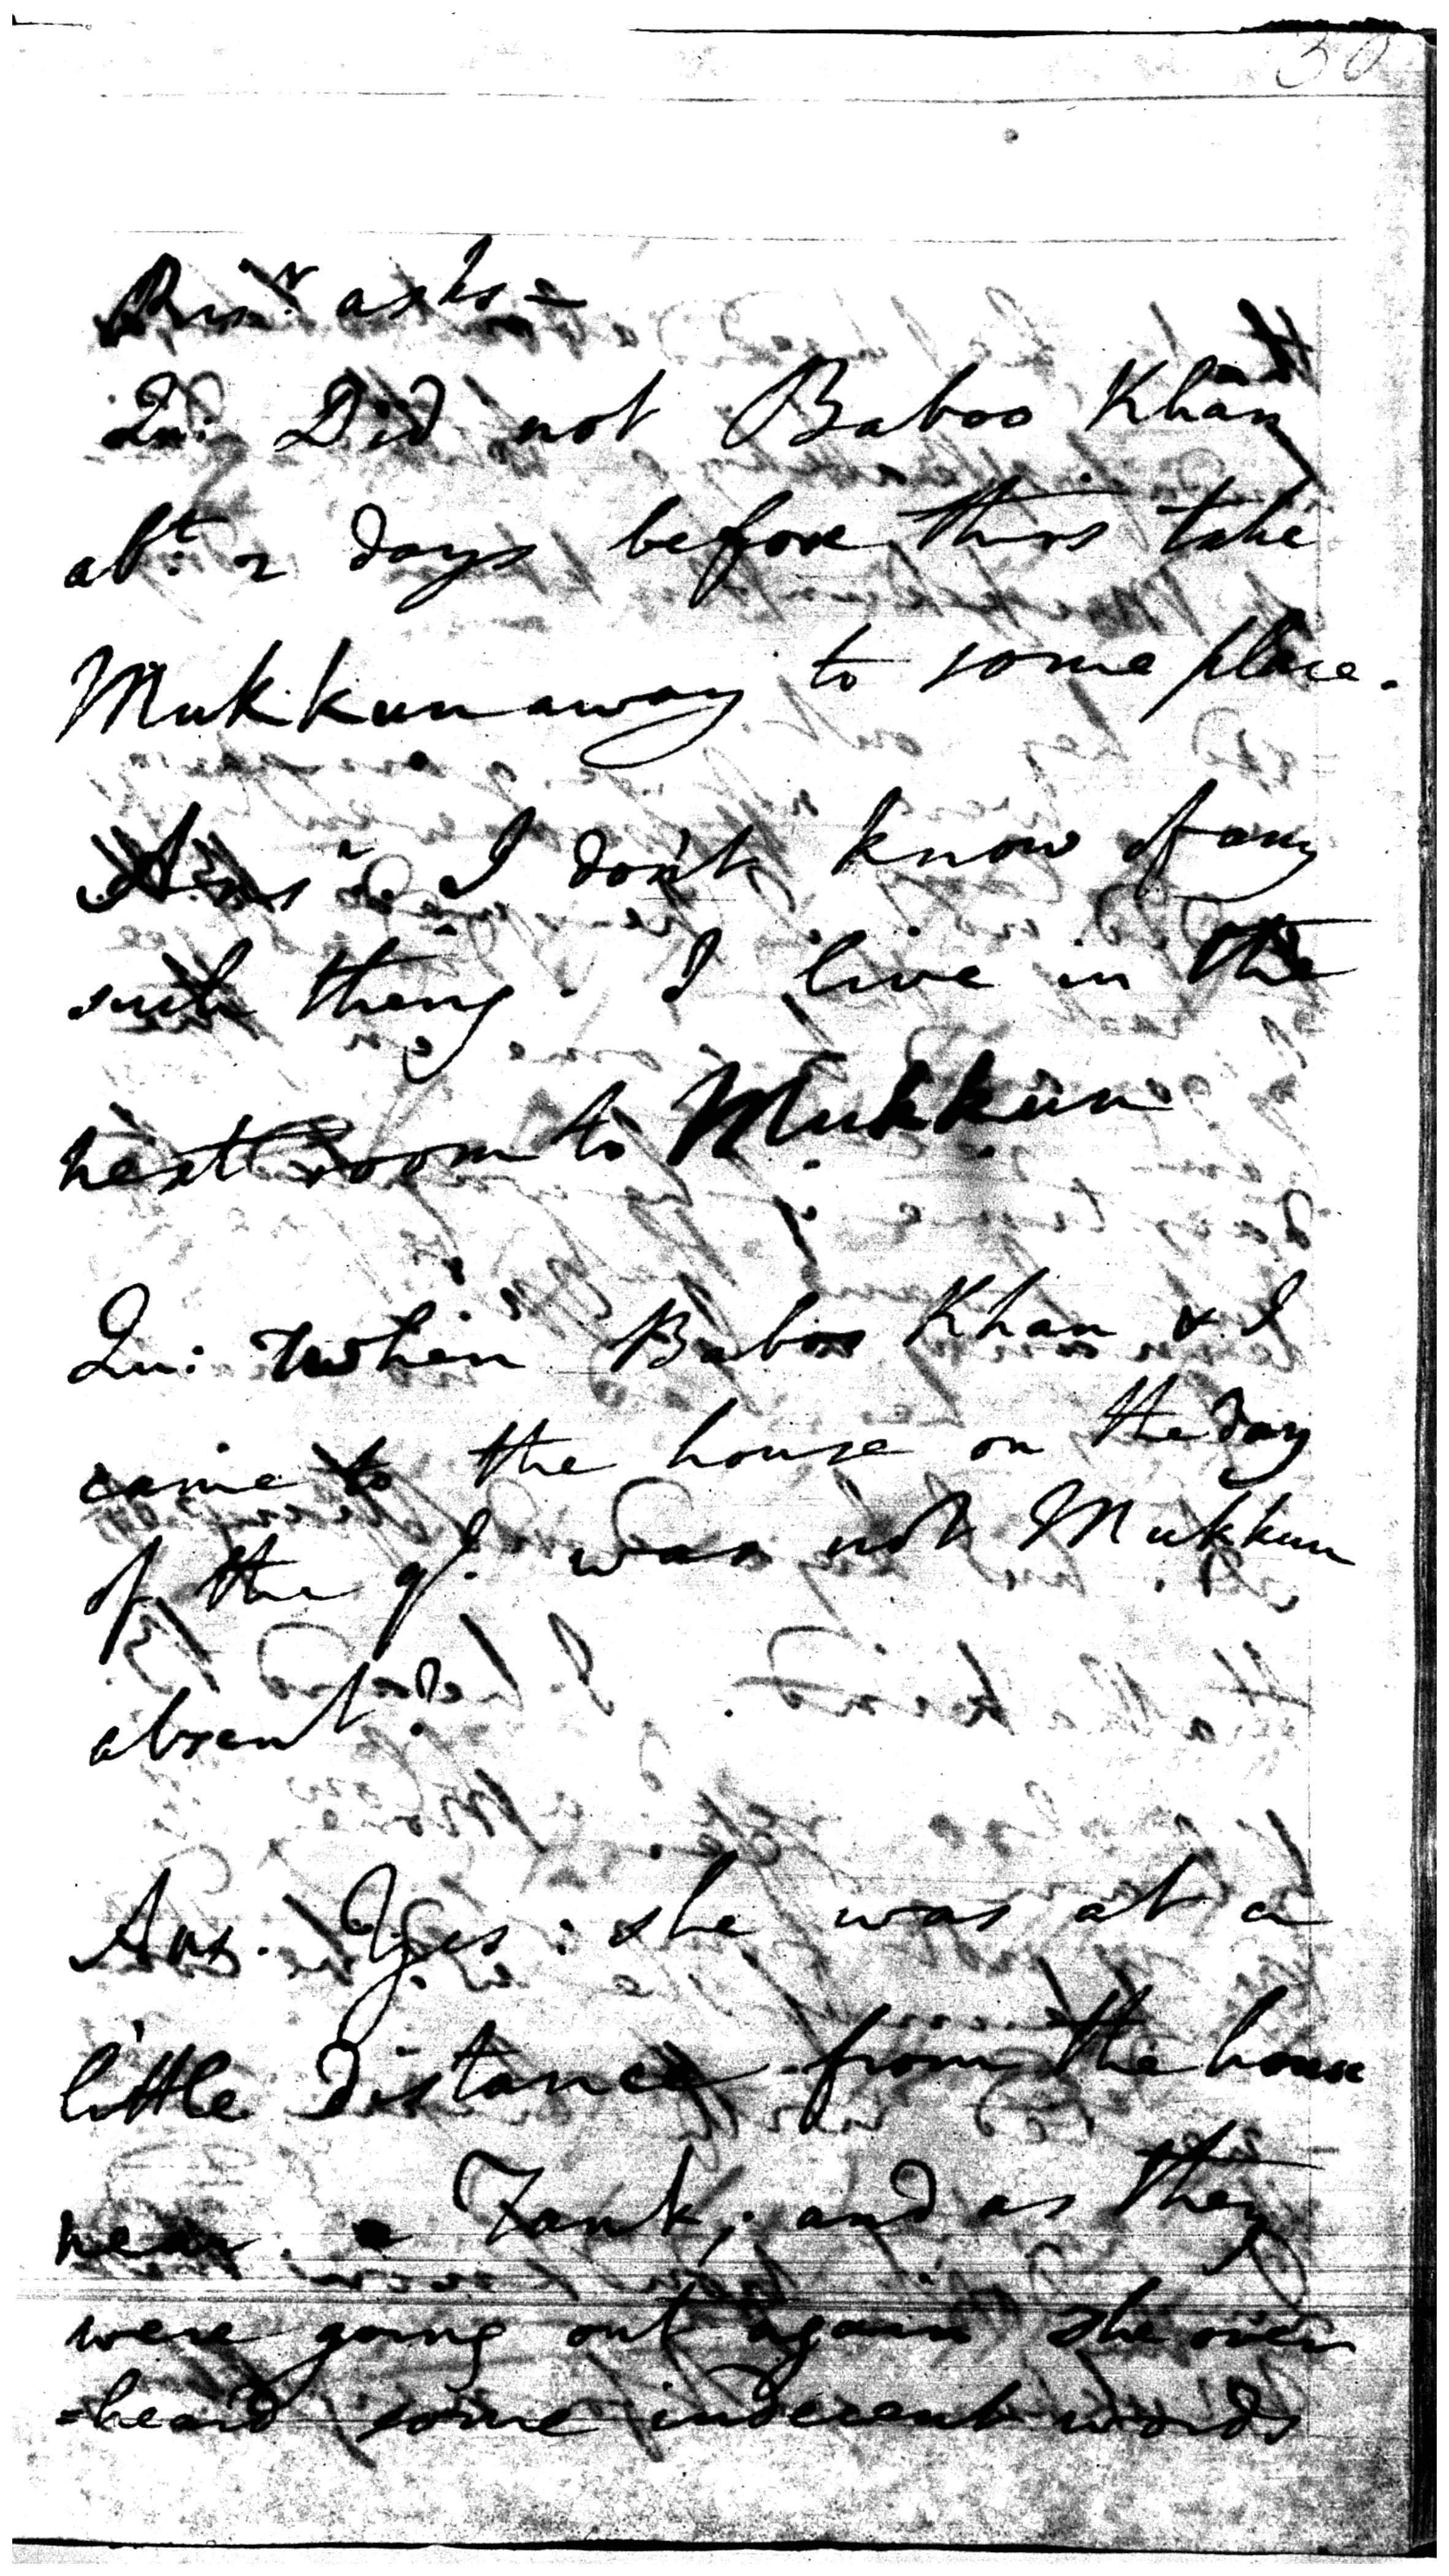 30
Pris.r asks –
Qn: Did not Baboo Khan
abt. 2 days before this take
Mukkun away to some place.
Ans: I don't know of any
such thing. I live in the
next room to Mukkun
Qn: When Baboo Khan & I
came to the house on the day
of the ql. was not Mukkun
absent?
Ans. Yes: she was at a
little distance from the house
near a Tank; and as they
were going out again she over
=heard some indecent words